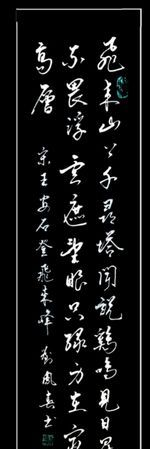 飛來山上千尋塔聞說鷄鳴見日昇
不畏浮雲遮望眼只緣身在最
高層
宋王安石登飛來峰 書